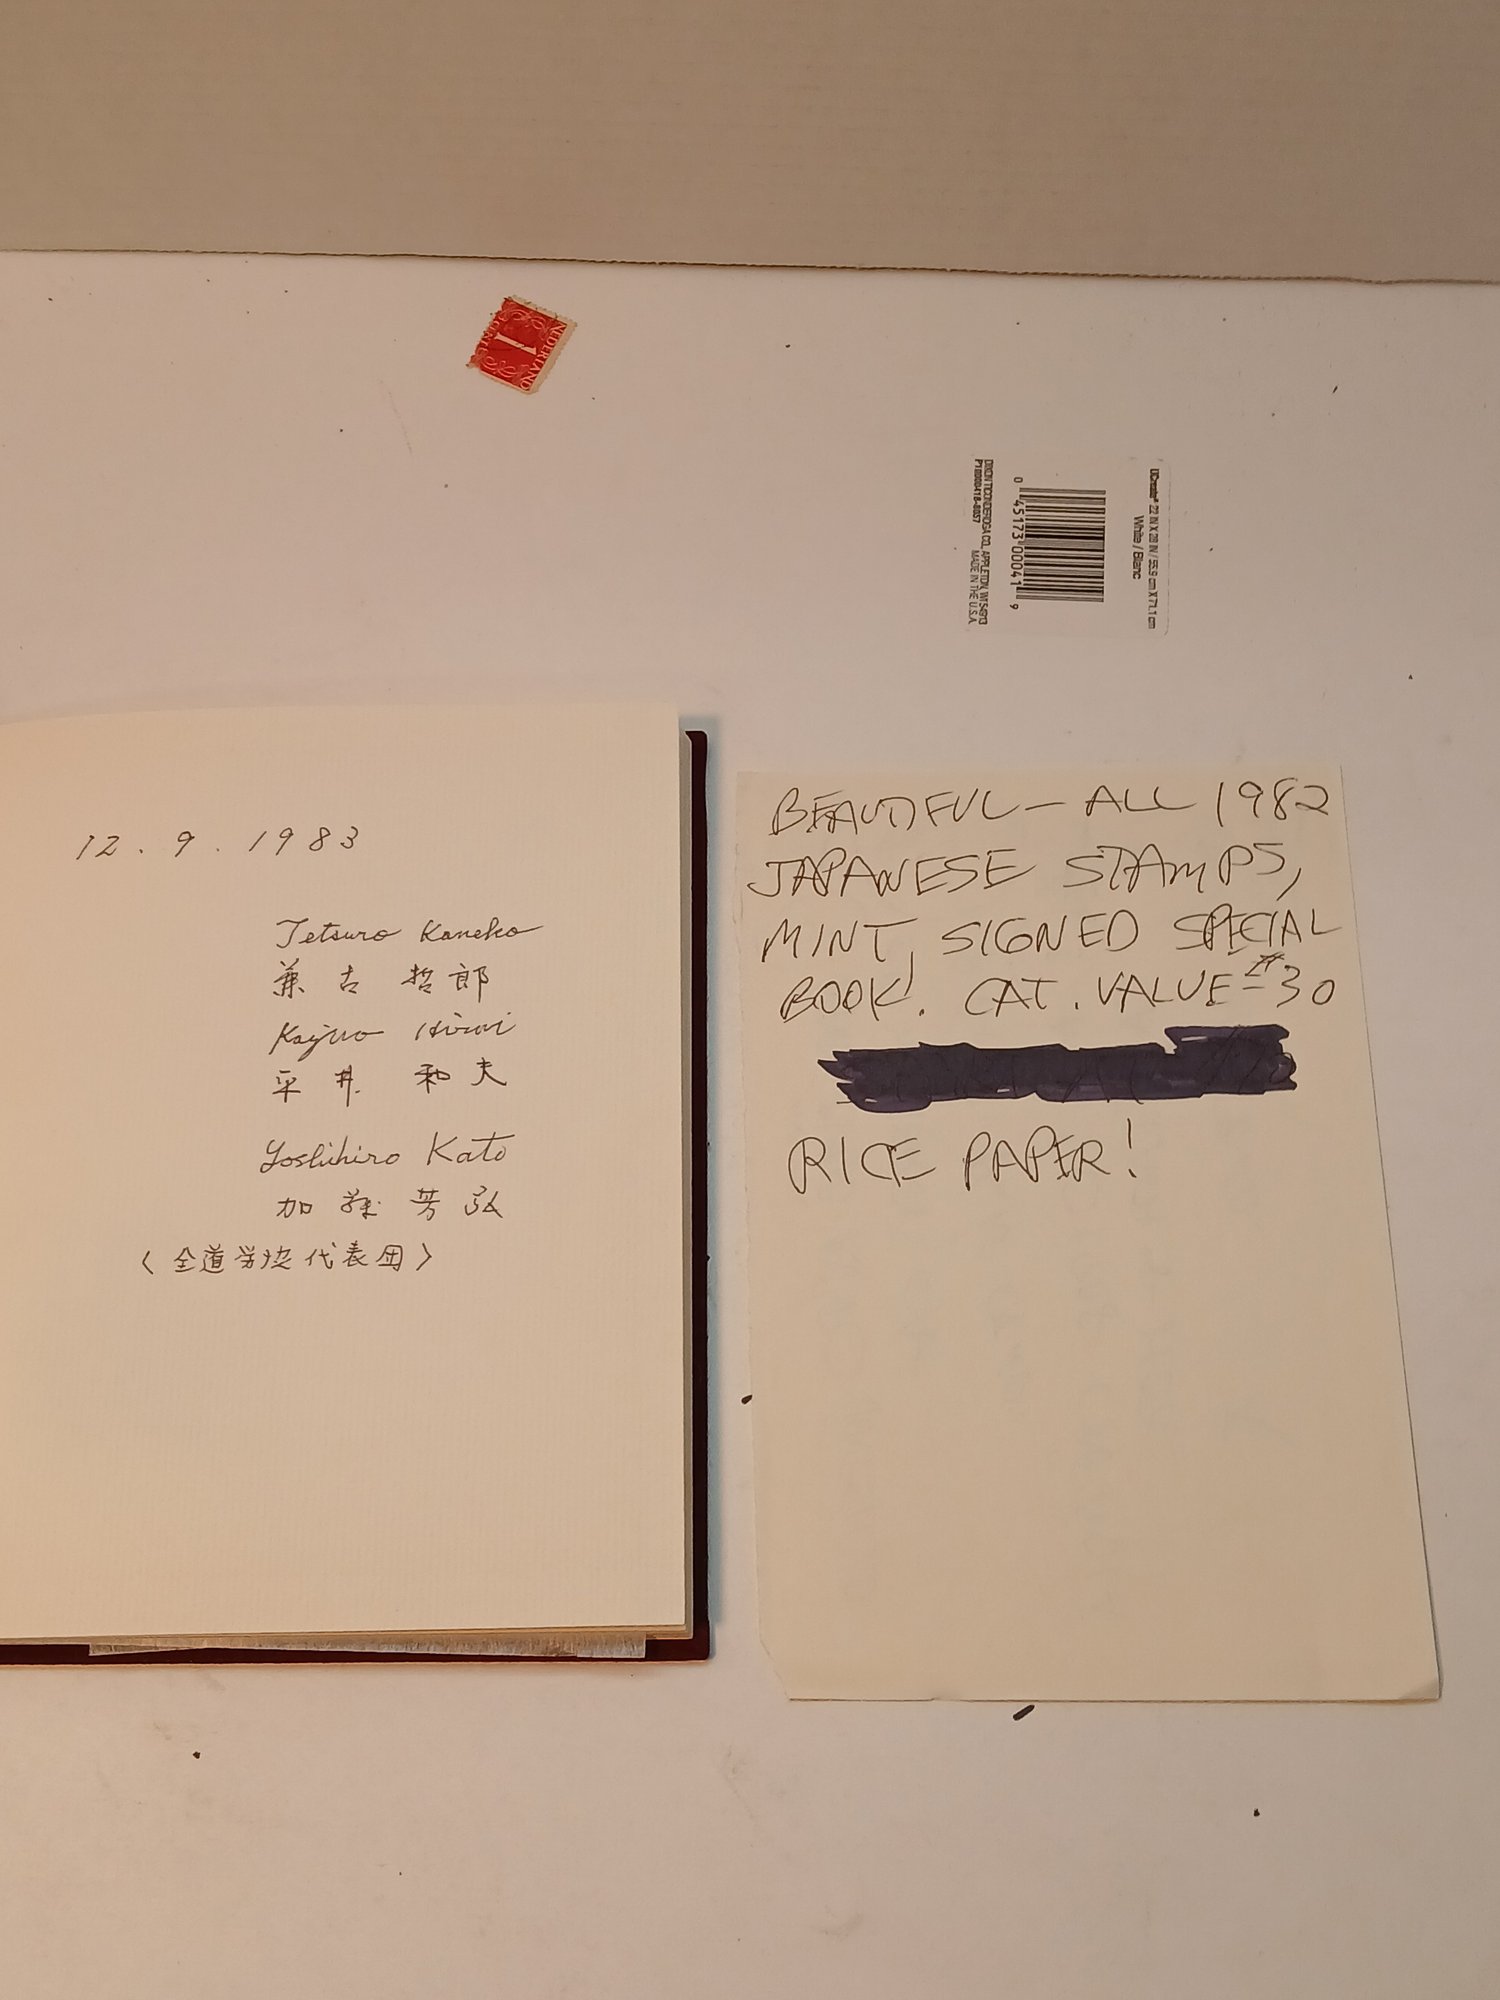 NEDERLAND
1
CENT
UCreate® 22 IN X 28 IN / 55.9 cm X 71.1 cm
White / Blanc
0 45173 00041 9
DIXON TICONDEROGA CO., APPLETON, WI 54913
MADE IN THE U.S.A.
12 . 9 . 1983
Tetsuro Kaneko
兼古 哲郎
Kazuo Hirai
平井 和夫
Yoshihiro Kato
加藤 芳弘
〈全道労協代表団〉
BEAUTIFUL - ALL 1982
JAPANESE STAMPS,
MINT, SIGNED SPECIAL
BOOK. CAT. VALUE = $30
RICE PAPER!